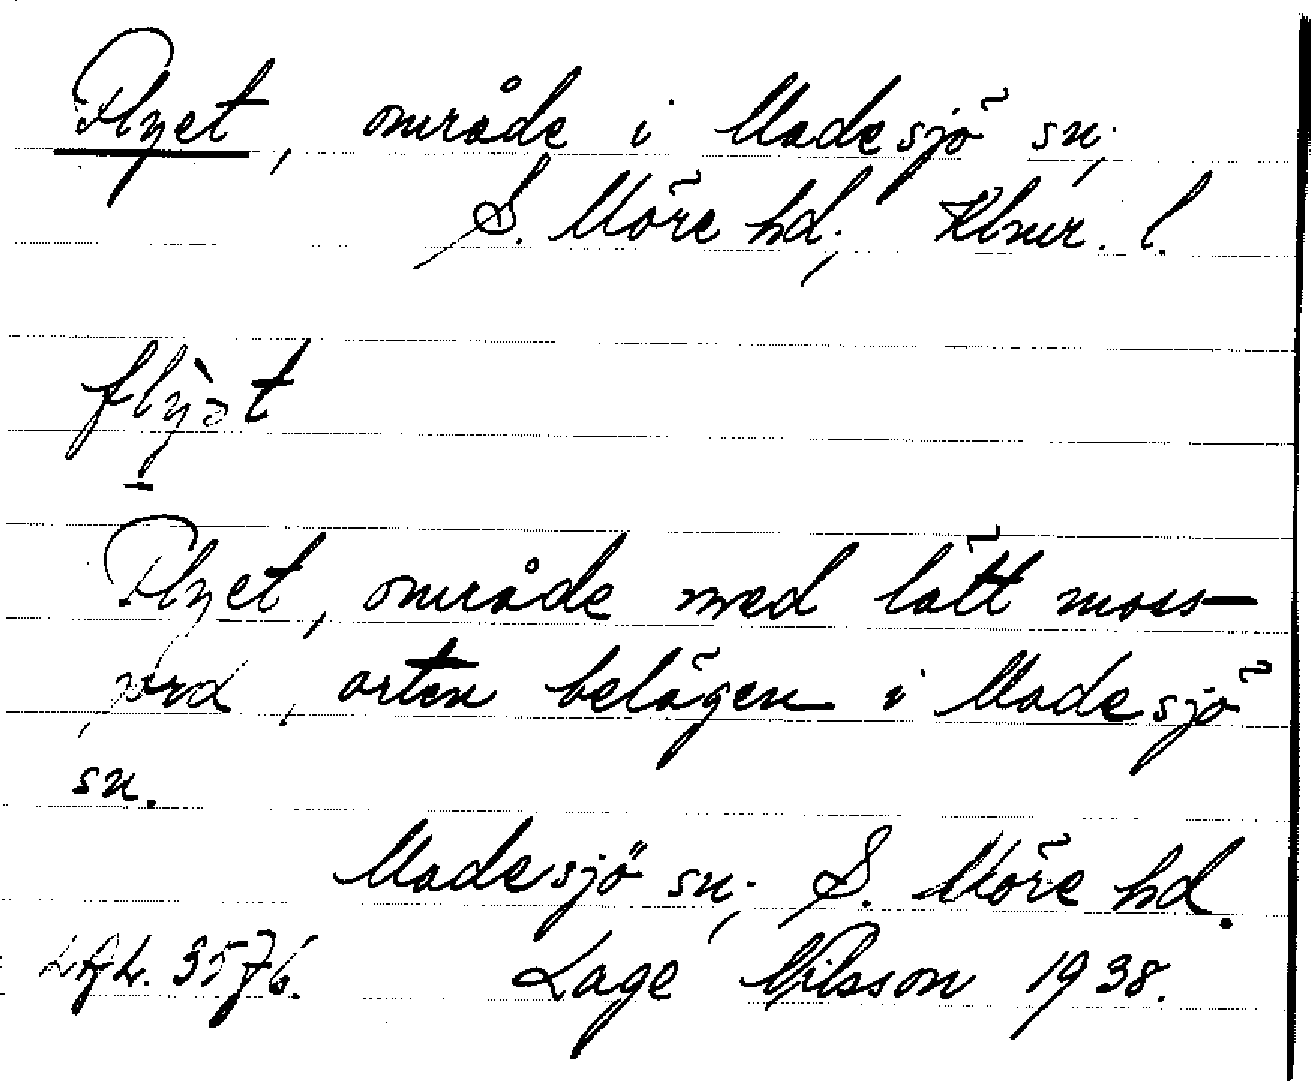 Flyet, område i Madesjö sn,
S. Möre hd, Klmr. l.
flỳət
Flyet, område med lätt moss-
jord, orten belägen i Madesjö
sn.
Madesjö sn, S. Möre hd.
3576. Lage Nilsson 1938.